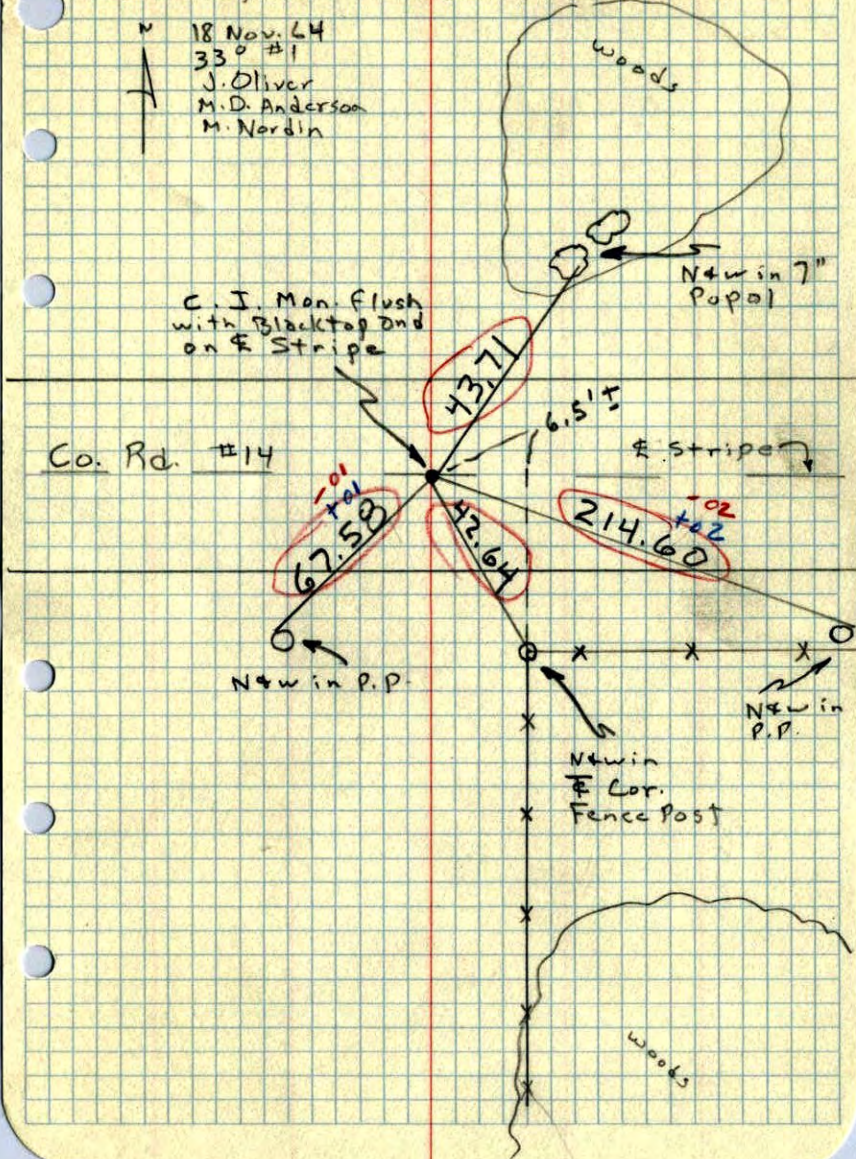 N
18 Nov. 64
33° #1
J. Oliver
M.D. Anderson
M. Nordin
Woods
N&W in 7"
Popal
C. I. Mon. Flush
with Blacktop and
on ℄ Stripe
43.71
6.5' ±
Co. Rd. #14
℄ Stripe
-01
+01
67.58
42.64
214.60
-02
+02
N&W in P.P.
N&W in
P.P.
N&W in
℄ Cor.
Fence Post
Woods